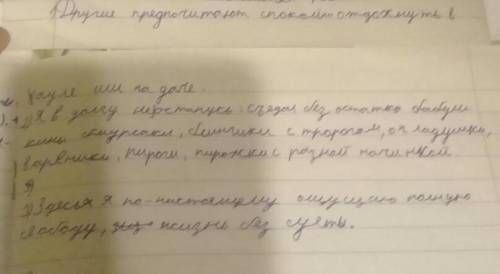 1) Другие предпочитают спокойно отдохнуть в
ауле или на даче.
2) Я в долгу не остапусь: съедал без остатка бабуш
кины вкусняки, блинчики с творогом, оладушки,
вареники, пироги, пирожки с разной начинкой.
Я
3) Здесь я по-настоящему ощущаю полную
свободу, жизнь без суеты.